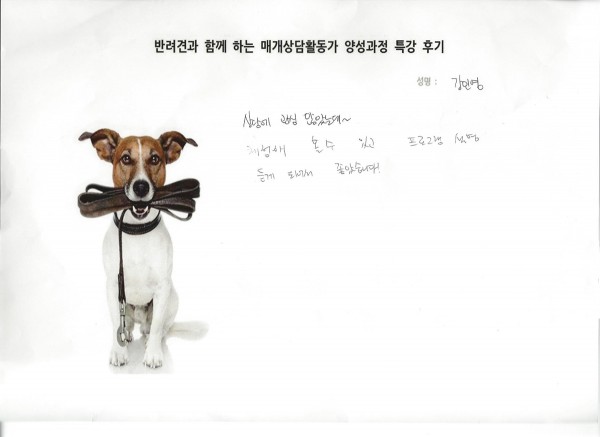 반려견과 함께 하는 매개상담활동가 양성과정 특강 후기
성명 : 김민영
상담에 관심 많았는데~
올 수 있고 프로그램 설명
듣게 되어서 좋았습니다!